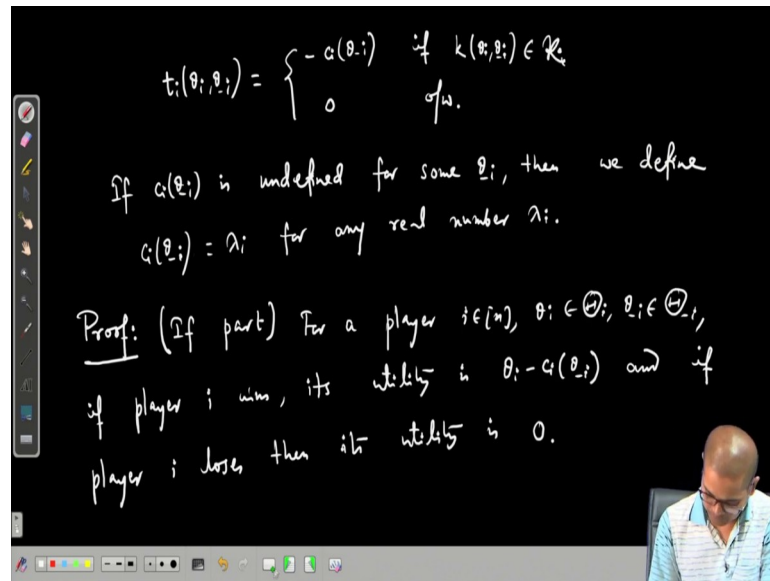 tᵢ(θᵢ, θ̲₋ᵢ) = { -cᵢ(θ̲₋ᵢ) if k(θᵢ, θ̲₋ᵢ) ∈ 𝒦ᵢ
0 o/w.
If cᵢ(θ̲₋ᵢ) is undefined for some θ̲₋ᵢ, then we define
cᵢ(θ̲₋ᵢ) = λᵢ for any real number λᵢ.
Proof: (If part) For a player i∈[n], θᵢ ∈ Θᵢ, θ̲₋ᵢ ∈ Θ̲₋ᵢ,
if player i wins, its utility is θᵢ - cᵢ(θ̲₋ᵢ) and if
player i loses then its utility is 0.